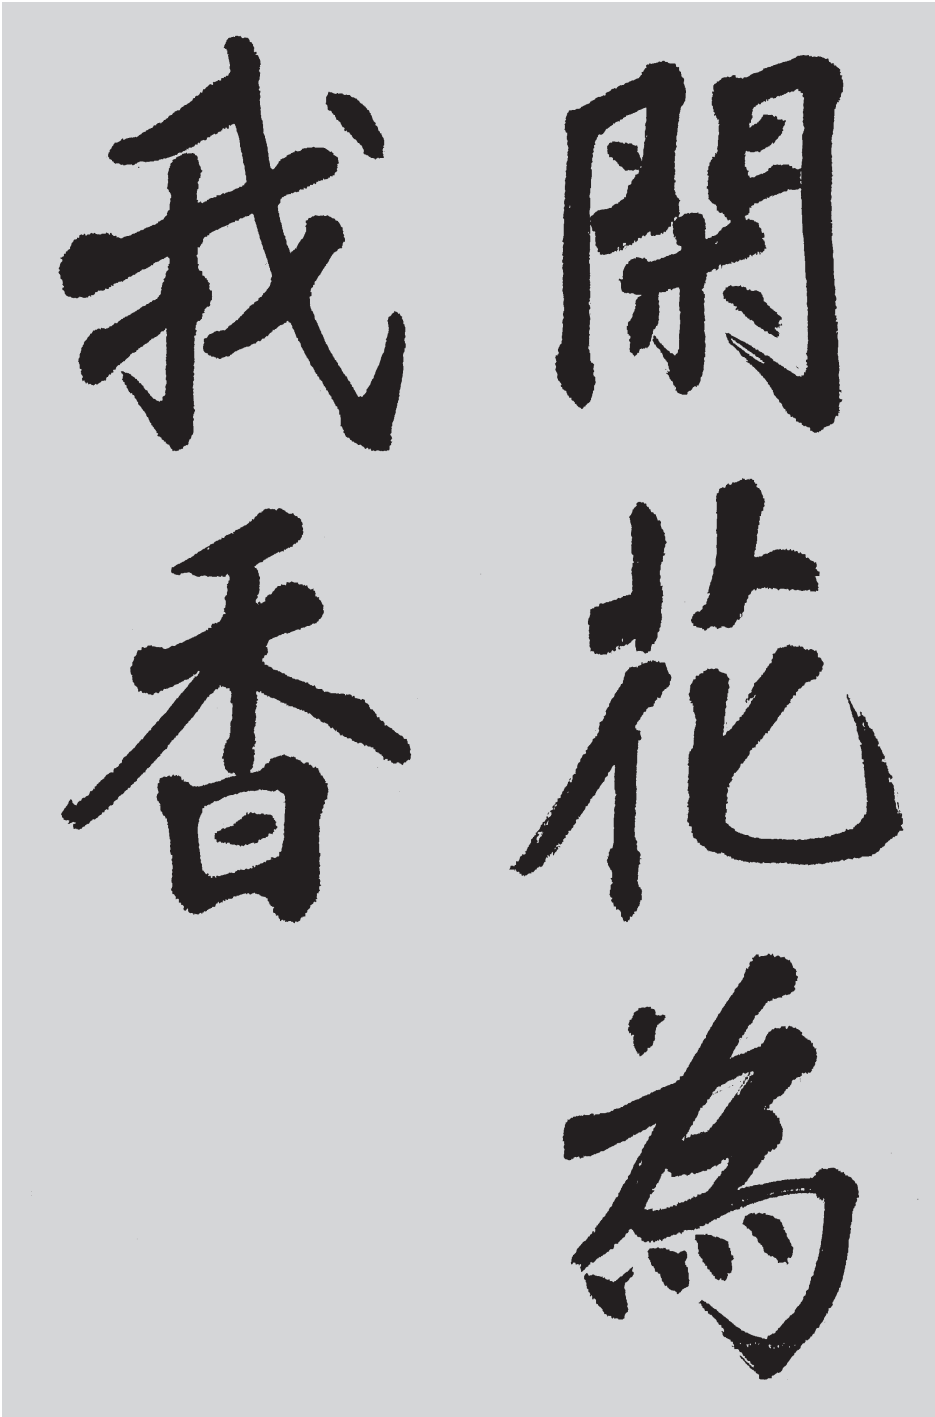 閑花為
我香